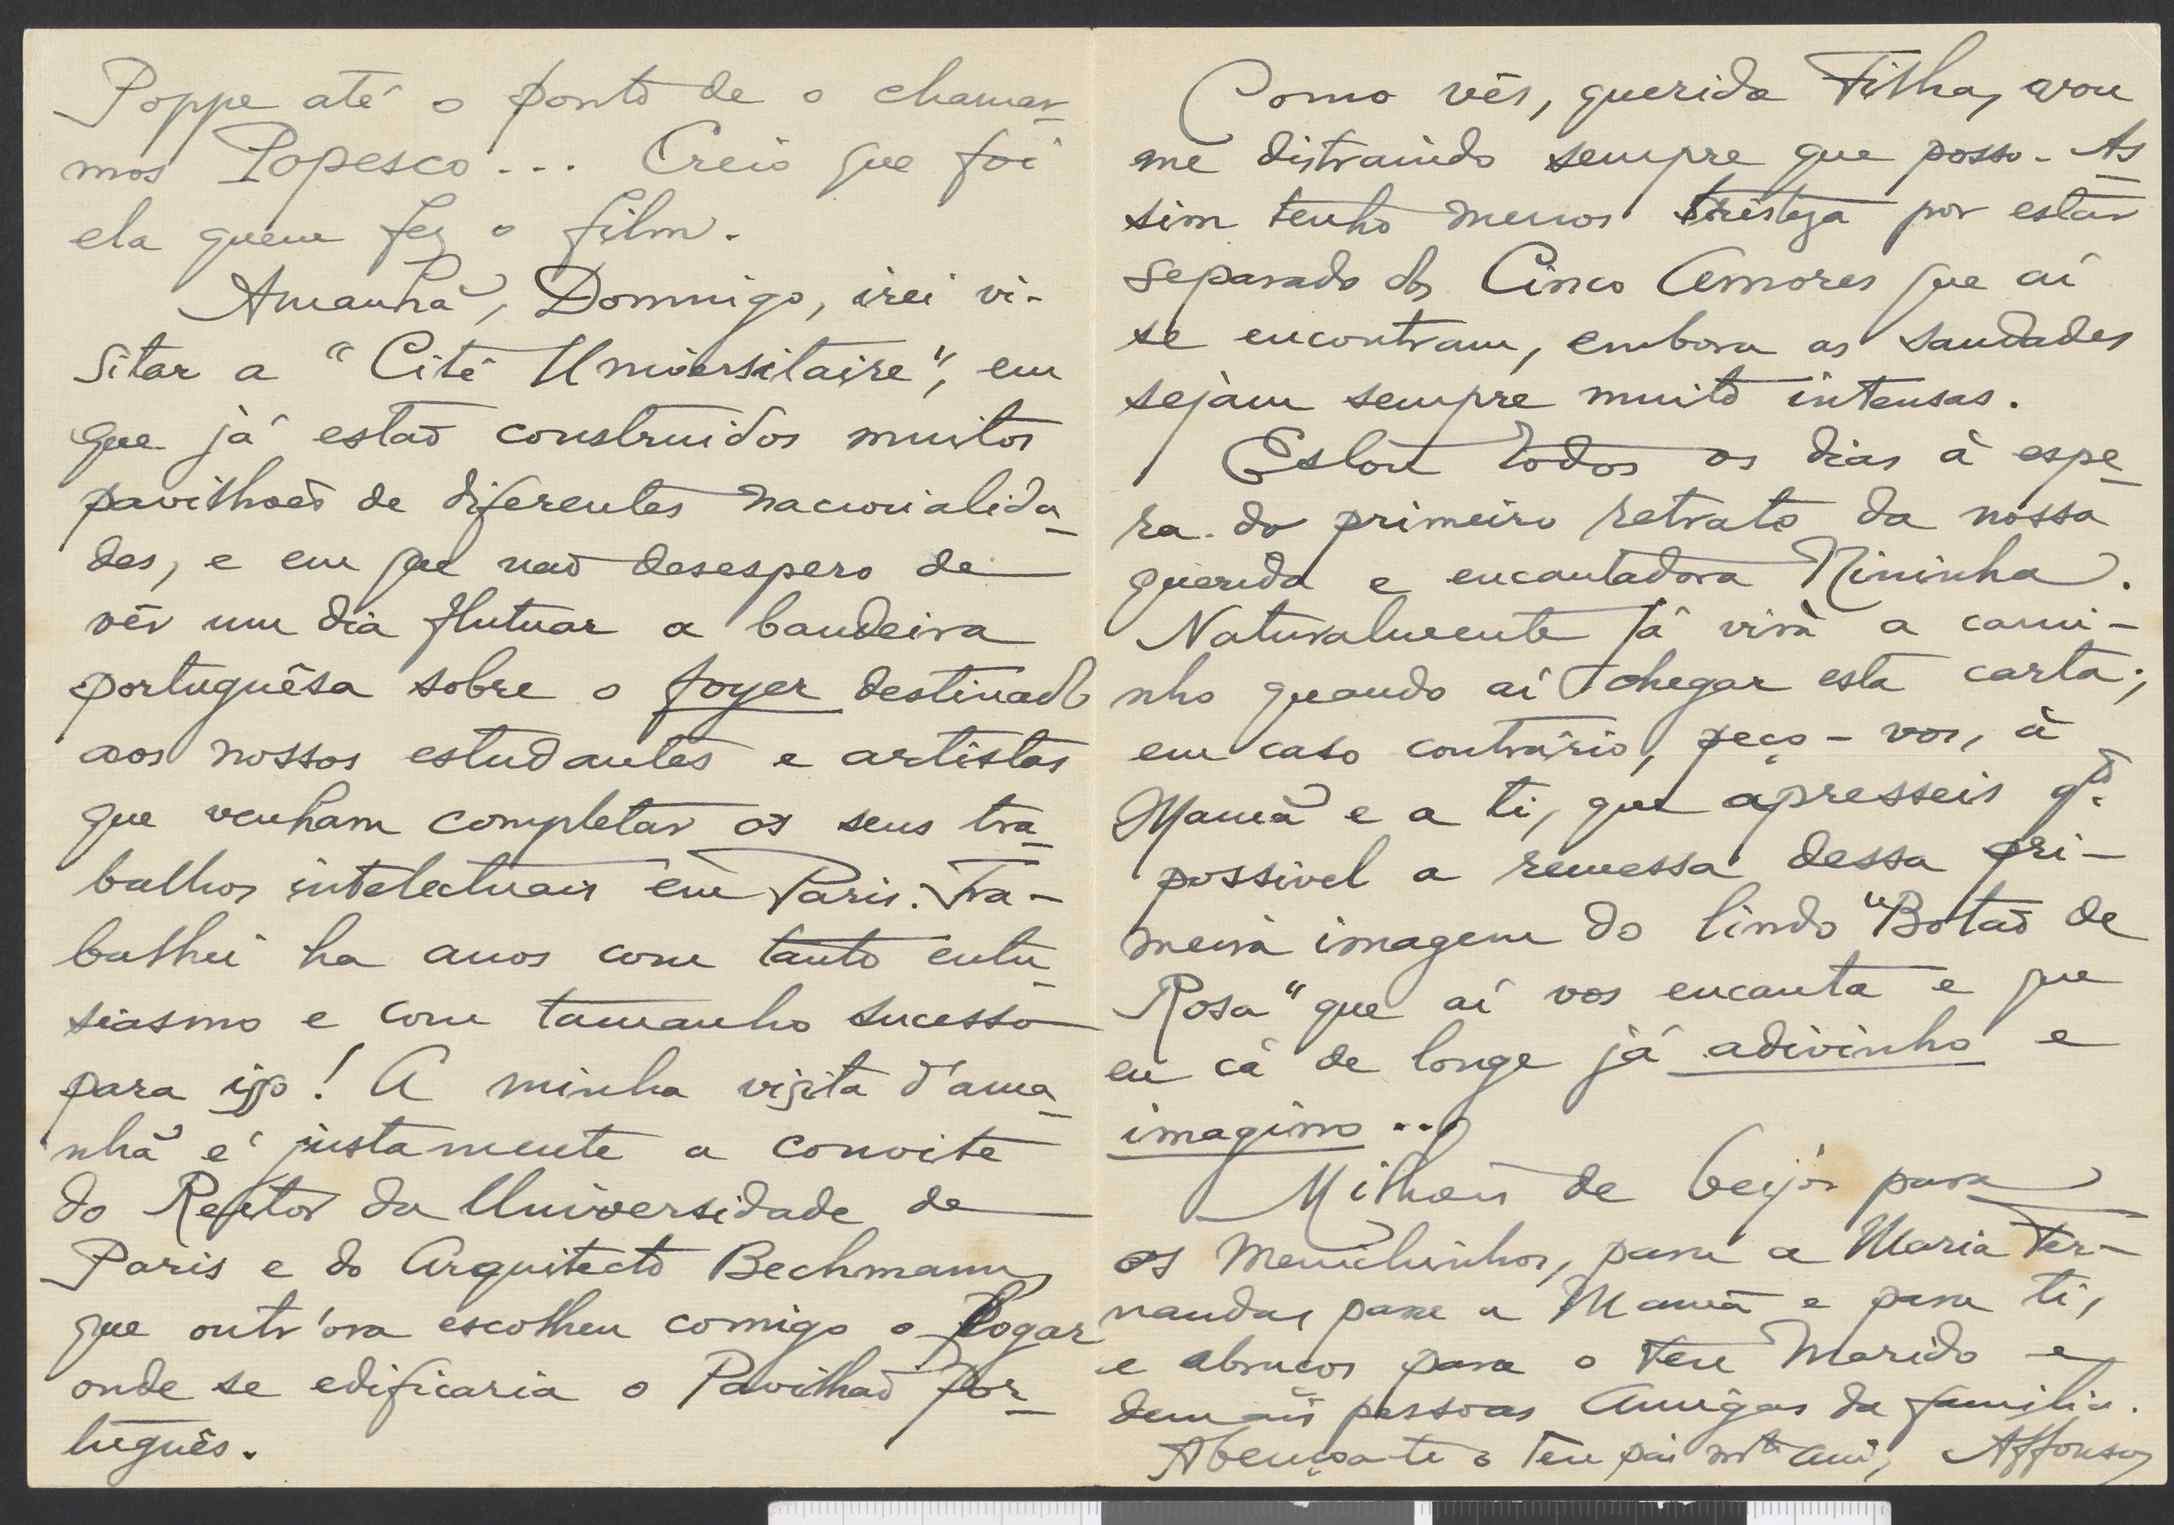 Poppe até o ponto de o chamar-
mos Popesco... Creio que foi
ela quem fez o film.
Amanhã, Domingo, irei vi-
sitar a "Cité Universitaire", em
que já estão construidos muitos
pavilhões de diferentes nacionalida-
des, e em que não desespero de
vêr um dia flutuar a bandeira
portuguêsa sobre o foyer destinado
aos nossos estudantes e artistas
que venham completar os seus tra-
balhos intelectuais em Paris. Tra-
balhei ha anos com tanto entu-
siasmo e com tamanho sucesso
para isso! A minha visita d'ama-
nhã é justamente a convite
do Reitor da Universidade de
Paris e do Arquitecto Bechmann
que outr'ora escolheu comigo o logar
onde se edificaria o Pavilhão por-
tuguês.
Como vês, querida Filha, vou
me distraindo sempre que posso. As-
sim tenho menos tristeza por estar
separado dos Cinco Amores que aí
se encontram, embora as saudades
sejam sempre muito intensas.
Estou todos os dias à espe-
ra do primeiro retrato da nossa
querida e encantadora Nininha.
Naturalmente já virá a cami-
nho quando aí chegar esta carta;
em caso contrário, peço-vos, à
Mamã e a ti, que apresseis qto.
possivel a remessa dessa pri-
meira imagem do lindo "Botão de
Rosa" que aí vos encanta e que
eu cá de longe já adivinho e
imagino...
Milhões de beijos para
os Menichinhos, para a Maria Fer-
nanda, para a Mamã e para ti,
e abraços para o teu Marido e
demais pessoas amigas da familia.
Abençoa-te o teu pai mto. ami, Affonso